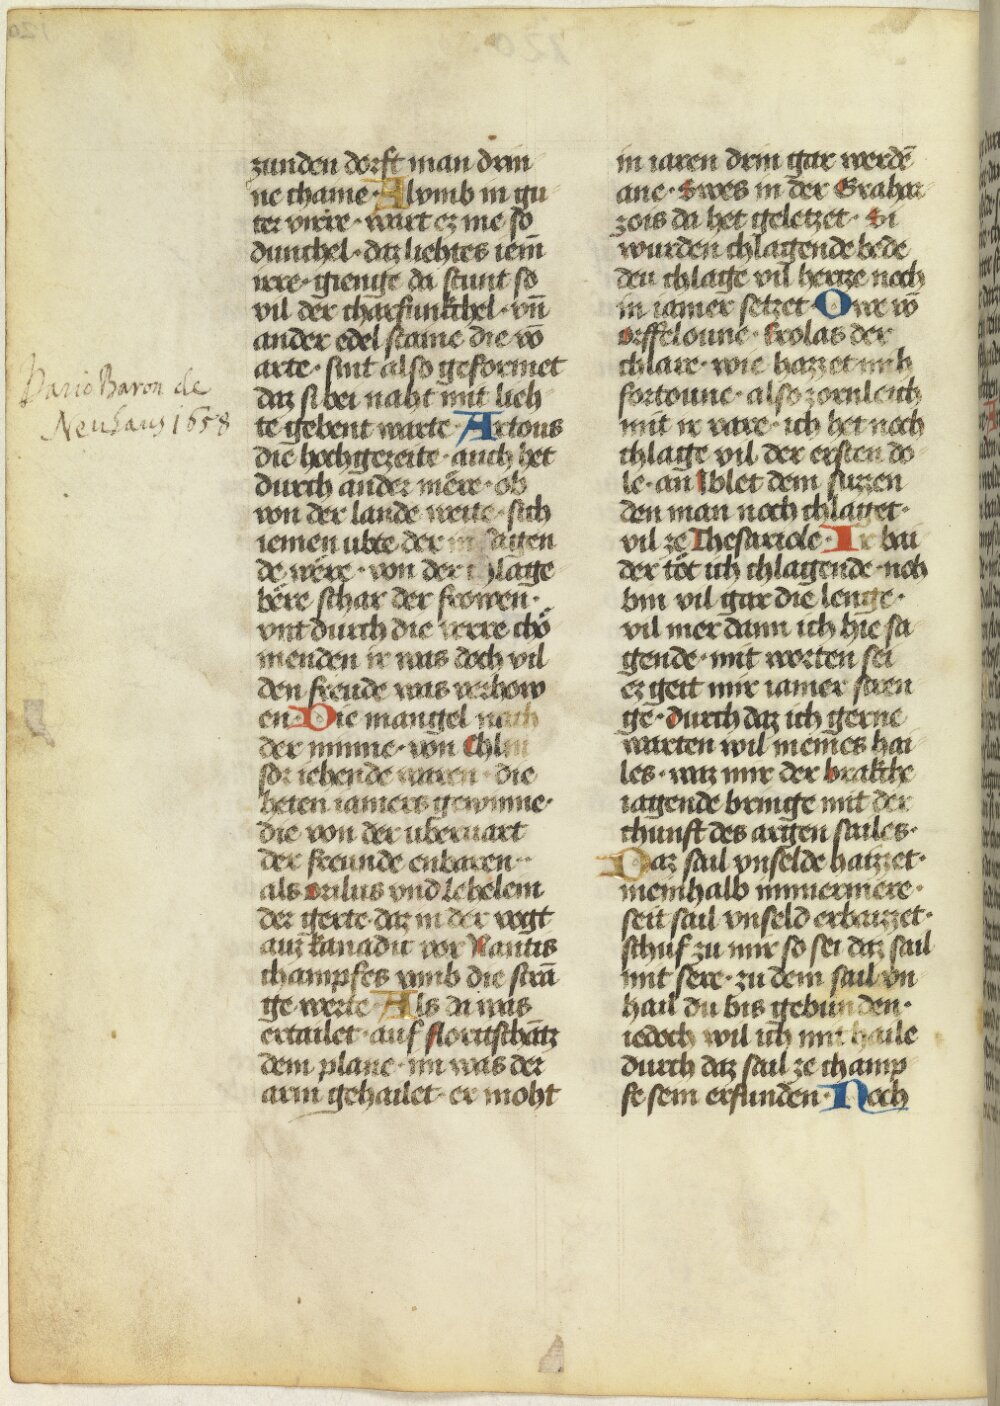 zunden dorft man drin
ne chaine · Alvmb in gu
ter virre · wart ez me so
dunchel · daz liehtes iem̄
irre · gienge da stunt so
vil der charfunkchel · vn̄
ander edel staine die vō
arte · sint also geformet
daz si bei naht mit lieh
te gebent warte · Artous
die hochgezeite · auch het
durch ander mere · ob
von der lande weite · sich
iemen ubte der in sagen
de were · von der chlage
bere schar der frowen ·
vnt durch die verre chö
menden ir was doch vil
den freude was verhow
en · Die mangel nach
der minne · von Chlin
sor iehende waren · die
heten iamers gewinne ·
die von der uberuart
der freunde enbaren ·
als orilus vnd Lehelein
der gerte · daz in der vogt
auz kanadic vor Nantis
champfes vmb die strā
ge werte · Als da was
ertailet · auf floritschātz
dem plane · im was der
arm gehailet · er moht
in iaren drin gar werdē
ane · Swes in der Grahar
zois da het geletzet · Si
wurden chlagende bede
den chlage vil hertze noch
in iamer setzet · Owe vō
orffeloune · frolas der
chlare · wie hazzet mih
fortoune · also zornleich
mit ir vare · ich het noch
chlage vil der ersten do
le · an Iblet dem suzzen
den man noch chlaget ·
vil ze Thesariole · Ir bai
der tot ich chlagende · noh
bin vil gar die lenge ·
vil mer dann ich hie sa
gende · mit worten sei
ez geit mir iamer stren
ge · durch daz ich gerne
warten wil meines hai
les · waz mir der brakche
iagende bringe mit der
chunft des argen sailes ·
Daz sail vnselde haizzet ·
meinhalb immermere ·
seit sail vnseld erbaizzet ·
schuf zu mir so sei daz sail
mit sere · zu dem sail vn
hail du bis gebunden ·
iedoch wil ich mit haile
durch daz sail ze champ
fe sein erfunden · Noch
Dario Baron de
Neuhaus 1658